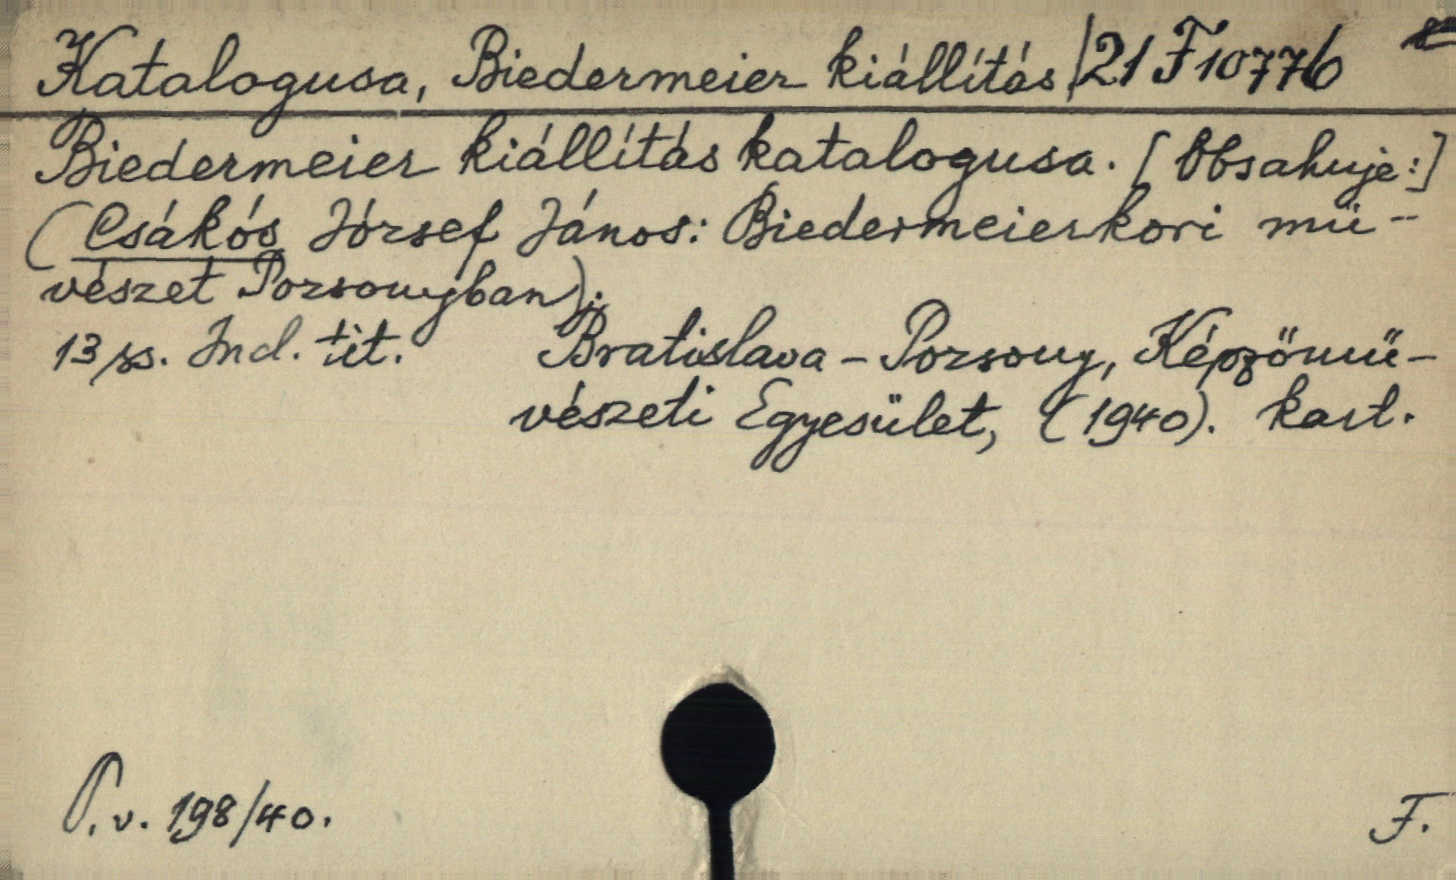 Katalogusa, Biedermeier kiállítás 21 F 10776
Biedermeier kiállítás katalogusa. [Obsahuje:]
(Csákós József János: Biedermeierkori mü-
vészet Pozsonyban).
13 ss. Ind. tit. Bratislava - Pozsony, Képzőmű-
vészeti Egyesület, (1940). kart.
P. v. 198/40.
F.